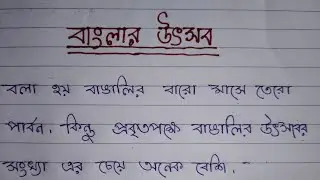 বাংলার উৎসব
বলা হয় বাঙালির বারো মাসে তেরো
পার্বন. কিন্তু প্রকৃতপক্ষে বাঙালির উৎসবের
সংখ্যা এর চেয়ে অনেক বেশি.